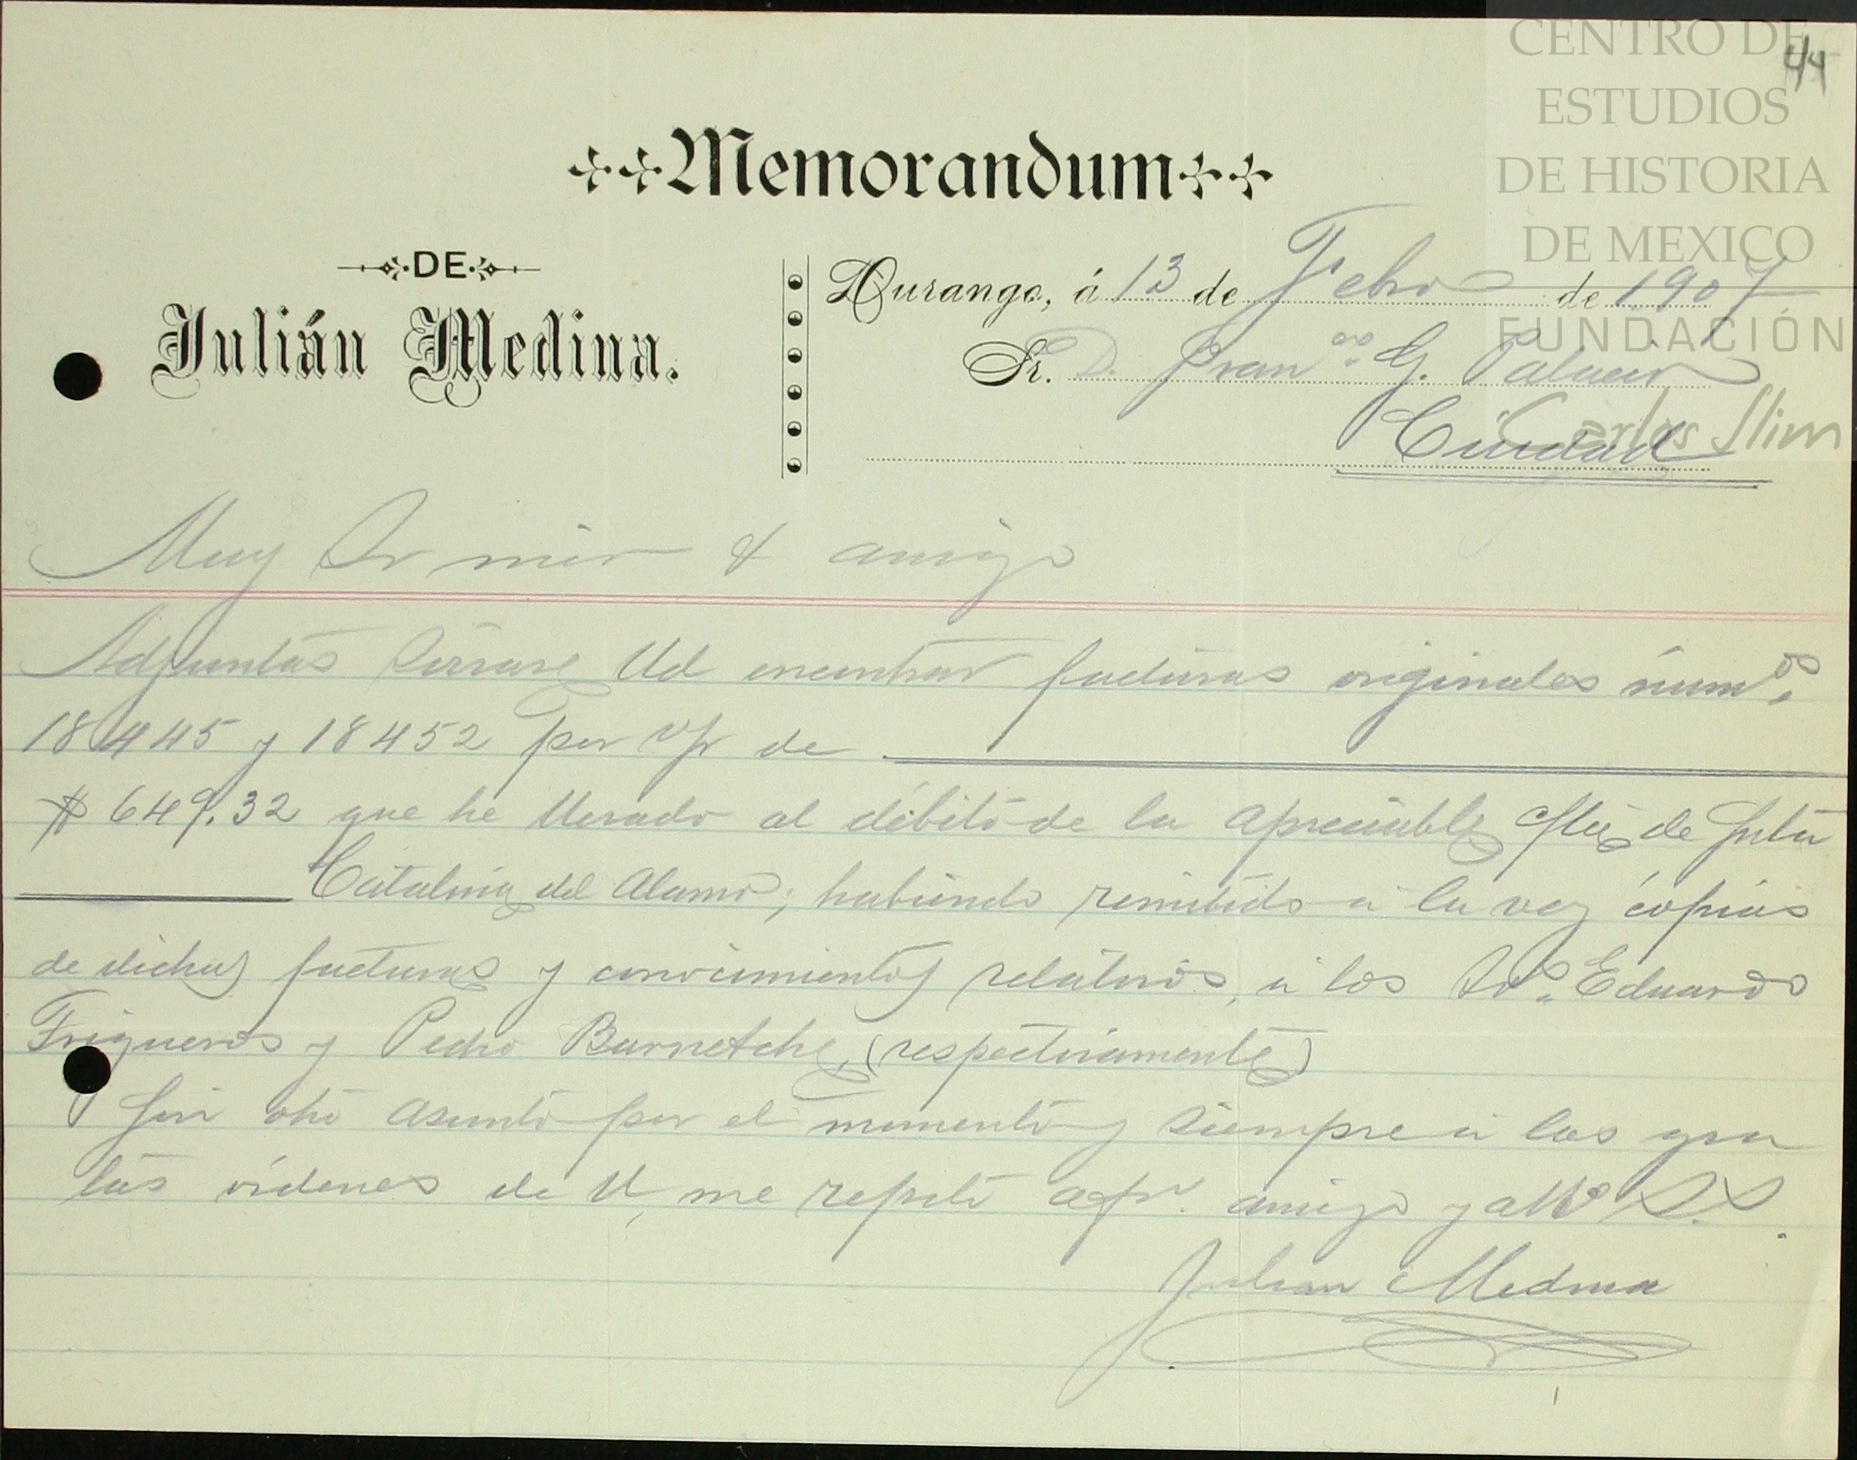 CENTRO DE
ESTUDIOS
DE HISTORIA
DE MEXICO
FUNDACIÓN
Carlos Slim
44
Memorandum
DE
Julián Medina.
Durango, á 13 de Febro de 1907
Sr. D. Franco. G. Palacio
Ciudad
Muy Sr mio & amigo
Adjuntas sirvase Ud encontrar facturas originales númos.
18445 y 18452 por v/r de
$ 649.32 que he llevado al débito de la apreciable de Santa
Catalina del Alamo; habiendo remitido a la vez cópias
de dichas facturas y conocimientos relativos, á los Srs. Eduardo
Trigueros y Pedro Burnetche, (respectivamente)
Sin otro asunto por el momento y siempre á las gra
tas órdenes de U, me repito afmo. amigo y atto S.S.
Julian Medina